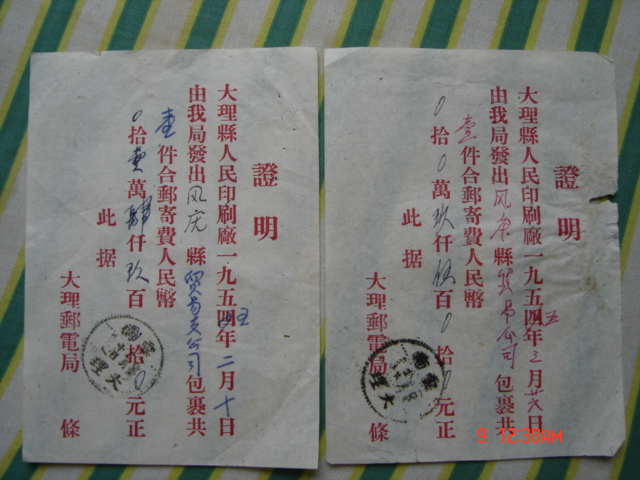 證明
大理縣人民印刷廠一九五五年二月十日
由我局發出风庆縣貿易支公司包裹共
壹件合郵寄費人民幣
0拾壹萬肆仟玖百0拾0元正
此据
大理郵電局 條
雲南
大理
證明
大理縣人民印刷廠一九五五年三月廿六日
由我局發出风庆縣貿易公司包裹共
壹件合郵寄費人民幣
0拾0萬玖仟伍百0拾0元正
此据
大理郵電局 條
雲南
大理
9 12:38AM